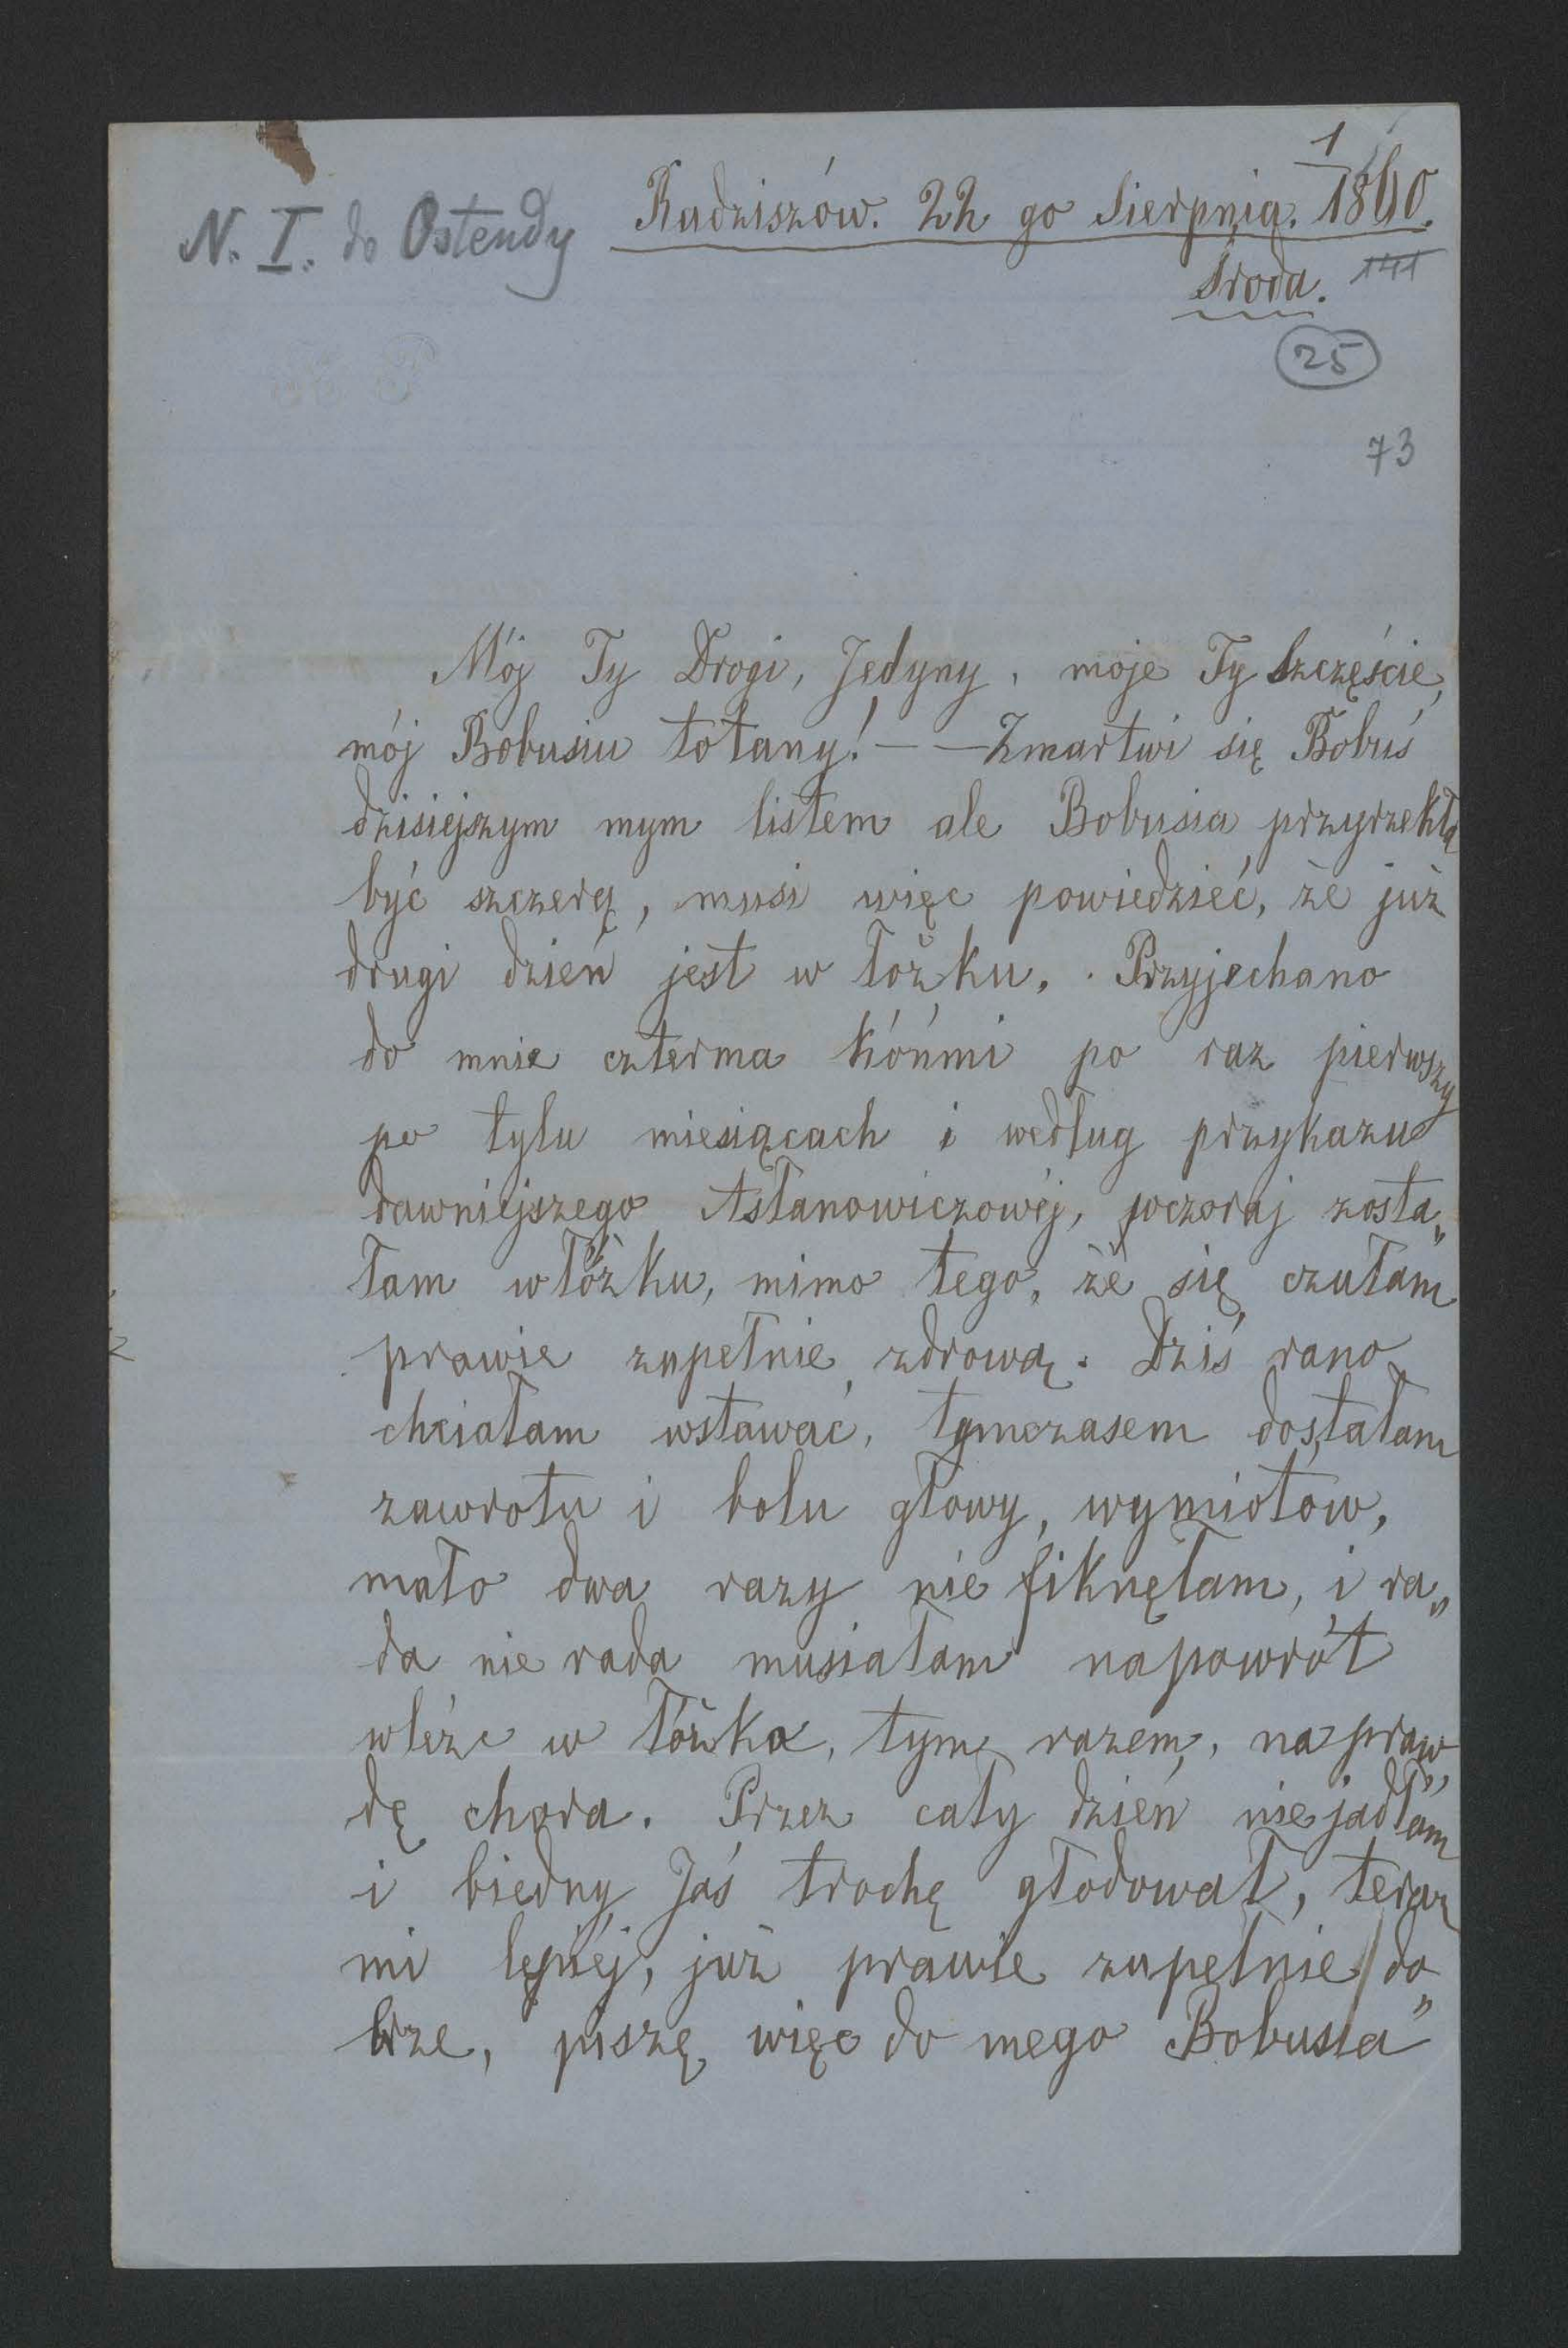 1
N. I. do Ostendy
Radziszów. 22 go Sierpnia. 1860.
Środa. 141
25
73
Mój Ty Drogi, Jedyny, moje Ty Szczęście,
mój Bobusiu łotany! — — Zmartwi się Bobuś
dzisiejszym mym listem ale Bobusia przyrzekła
być szczerą, musi więc powiedzieć, że już
drugi dzień jest w łóżku. Przyjechano
do mnie czterma kóńmi po raz pierwszy
po tylu miesiącach i według przykazu
dawniejszego Asłanowiczowéj, wczoraj zosta„
łam w łóżku, mimo tego, że się czułam
prawie zupełnie zdrową. Dziś rano
chciałam wstawać, tymczasem dostałam
zawrotu i bolu głowy, wymiotów,
mało dwa razy nie fiknęłam, i ra„
da nie rada musiałam napowrót
wléźć w łóżko, tym razem, napraw„
dę chora. Przez cały dzień nie jadłam
i biedny Jaś trochę głodował, teraz
mi lepiéj, już prawie zupełnie do„
brze, piszę więc do mego Bobusia